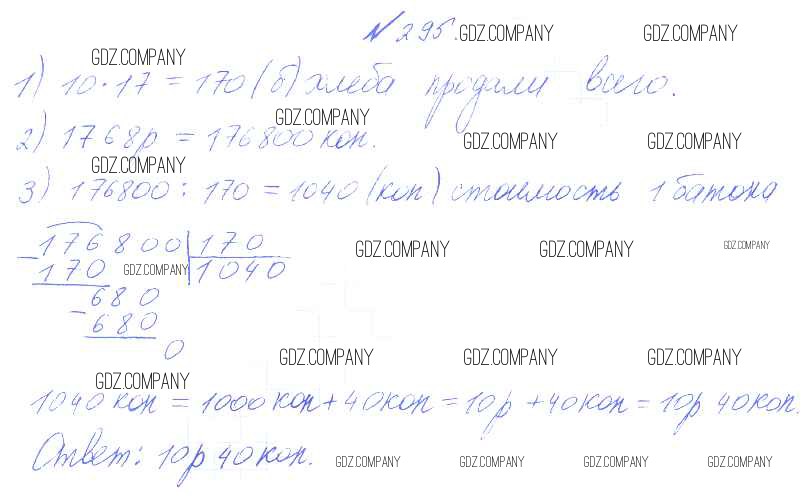 № 295. GDZ.COMPANY GDZ.COMPANY
GDZ.COMPANY
1) 10 · 17 = 170 (б) хлеба продали всего.
GDZ.COMPANY
2) 1768р = 176800 коп. GDZ.COMPANY GDZ.COMPANY
GDZ.COMPANY
3) 176800 : 170 = 1040 (коп) стоимость 1 батона
176800 170
GDZ.COMPANY GDZ.COMPANY GDZ.COMPANY
- 170 GDZ.COMPANY 1040
680
- 680
0
GDZ.COMPANY GDZ.COMPANY GDZ.COMPANY
GDZ.COMPANY
1040 коп = 1000 коп + 40 коп = 10 р + 40 коп = 10р 40 коп.
Ответ: 10р 40 коп. GDZ.COMPANY GDZ.COMPANY GDZ.COMPANY GDZ.COMPANY